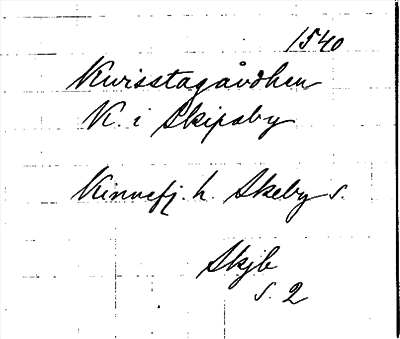 1540
Kwisstagåvdhen
K. i Skipsby
Kinnefj. h. Skeby s.
Skjb
s. 2